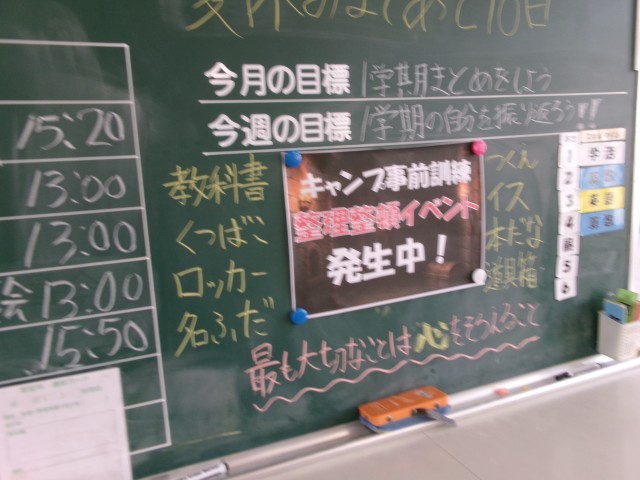 夏休みまであと10日
今月の目標 1学期まとめをしよう
今週の目標 1学期の自分を振り返ろう!!
15:20
13:00
13:00
会 13:00
15:50
教科書
くつばこ
ロッカー
名ふだ
キャンプ事前訓練
整理整頓イベント
発生中!
つくえ
イス
本だな
道具箱
最も大切なことは心をそろえること
1 学活
2
3 英語
4
5
6